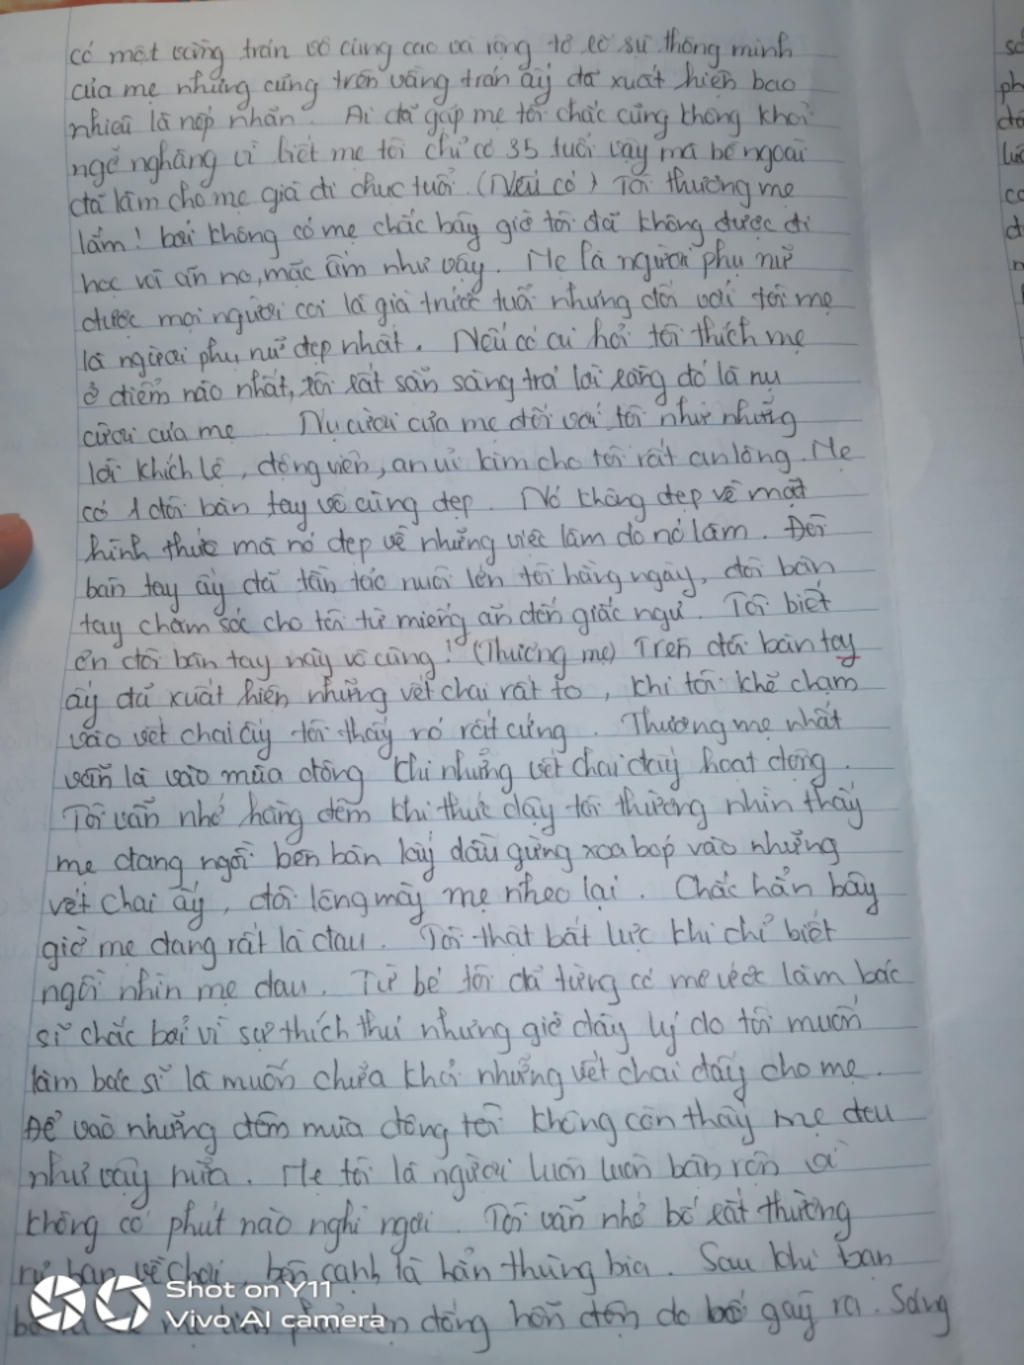 có một vầng trán vô cùng cao và rộng tỏ rõ sự thông minh
của mẹ nhưng cũng trên vầng trán ấy đã xuất hiện bao
nhiêu là nếp nhăn. Ai đã gặp mẹ tôi chắc cũng không khỏi
ngỡ ngàng vì biết mẹ tôi chỉ có 35 tuổi vậy mà bề ngoài
đã làm cho mẹ già đi chục tuổi. (Nếu có) Tôi thương mẹ
lắm! bởi không có mẹ chắc bây giờ tôi đã không được đi
học và ăn no, mặc ấm như vậy. Mẹ là người phụ nữ
được mọi người coi là già trước tuổi nhưng đối với tôi mẹ
là người phụ nữ đẹp nhất. Nếu có ai hỏi tôi thích mẹ
ở điểm nào nhất, tôi rất sẵn sàng trả lời rằng đó là nụ
cười của mẹ. Nụ cười của mẹ đối với tôi như những
lời khích lệ, động viên, an ủi làm cho tôi rất an lòng. Mẹ
có 1 đôi bàn tay vô cùng đẹp. Nó không đẹp về mặt
hình thức mà nó đẹp về những việc làm do nó làm. Đôi
bàn tay ấy đã tần tảo nuôi lớn tôi hằng ngày, đôi bàn
tay chăm sóc cho tôi từ miếng ăn đến giấc ngủ. Tôi biết
ơn đôi bàn tay này vô cùng! (Thương mẹ) Trên đôi bàn tay
ấy đã xuất hiện những vết chai rất to, khi tôi khẽ chạm
vào vết chai ấy tôi thấy nó rất cứng. Thương mẹ nhất
vẫn là vào mùa đông khi những vết chai dấy hoạt động.
Tôi vẫn nhớ hằng đêm khi thức dậy tôi thường nhìn thấy
mẹ đang ngồi bên bàn lấy dầu gừng xoa bóp vào những
vết chai ấy, đôi lông mày mẹ nheo lại. Chắc hẳn bây
giờ mẹ đang rất là đau. Tôi thật bất lực khi chỉ biết
ngồi nhìn mẹ đau. Từ bé tôi đã từng có mơ ước làm bác
sĩ chắc bởi vì sự thích thú nhưng giờ đây lý do tôi muốn
làm bác sĩ là muốn chữa khỏi những vết chai đấy cho mẹ.
Để vào những đêm mùa đông tôi không còn thấy mẹ đau
như vậy nữa. Mẹ tôi là người luôn luôn bận rộn và
không có phút nào nghỉ ngơi. Tôi vẫn nhớ bố rất thường
rủ bạn về chơi, bên cạnh là hẳn thùng bia. Sau khi bạn
dọn đống hỗn độn do bố gây ra. Sáng
Shot on Y11
Vivo AI camera